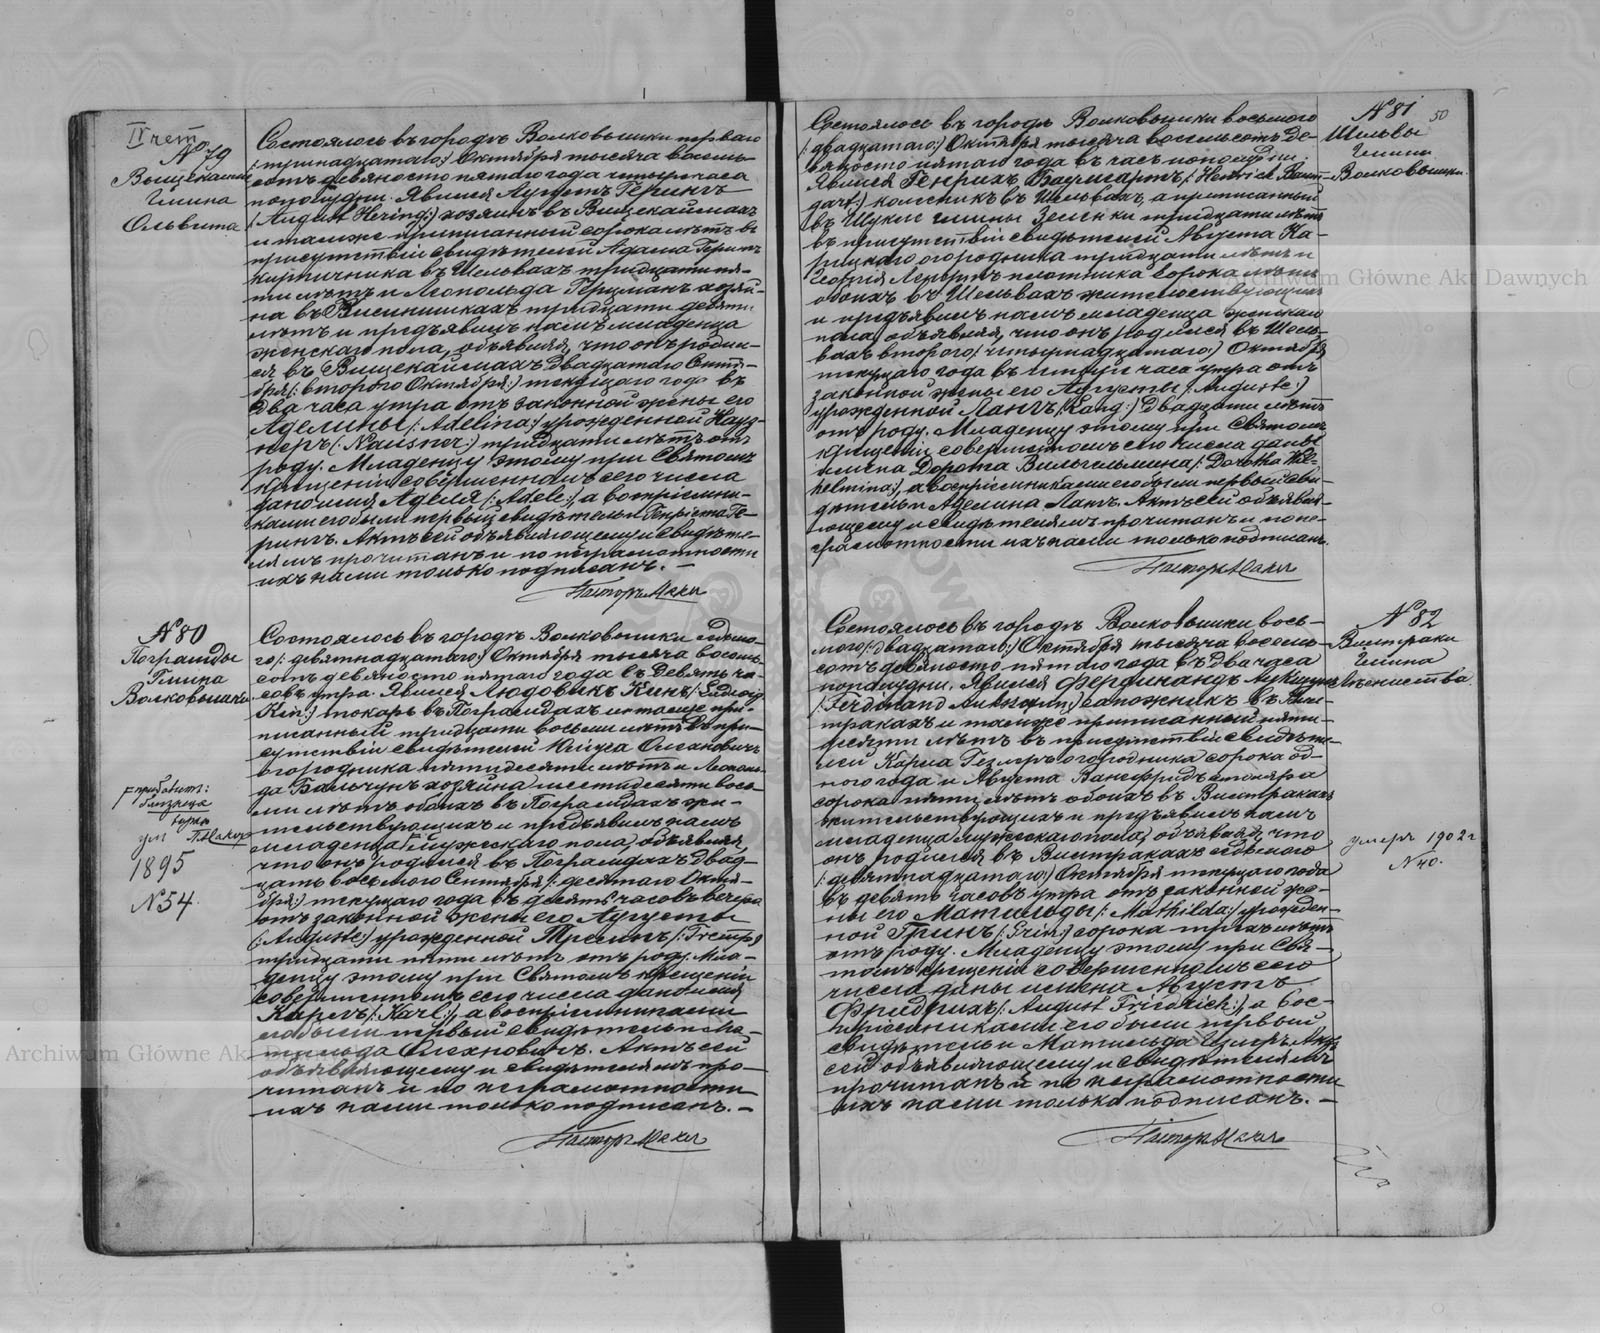 IV чет
№ 79
Вищекаймы
Гмина
Ольвита
Состоялось въ городѣ Волковышки перваго
/:тринадцатаго:/ Октября тысяча восемь-
сотъ девяносто пятаго года четыре часа
пополудни. Явился Августъ Герингъ
/:August Hering:/ хозяинъ въ Вищекаймахъ
и тамже приписанный сорока лѣтъ въ
присутствіи свидѣтелей Адама Герингъ
кирпичника въ Шельвахъ тридцати пя-
ти лѣтъ и Леопольда Герцманъ хозяи-
на въ тридцати девяти
лѣтъ и предъявилъ намъ младенца
женскаго пола, объявляя, что онъ родил-
ся въ Вищекаймахъ двадцатаго Сентя-
бря /:второго Октября:/ текущаго года въ
два часа утра отъ законной жены его
Аделины /:Adelina:/ урожденной Науз-
неръ /:Nausner:/ тридцати лѣтъ отъ
роду. Младенцу этому при Святомъ
крещеніи совершенномъ сего числа
дано имя Аделя /:Adele:/, а воспріемни-
ками его были первый свидѣтель и Генріета Ге-
рингъ. Актъ сей объявляющему и свидѣте-
лямъ прочитанъ и по неграмотности
ихъ нами только подписанъ. —
Пасторъ
№ 80
Пограмды
Гмина
Волковышки
прибавит:
близнеца
1895
№ 54.
Состоялось въ городѣ Волковышки седьмо-
го /:девятнадцатаго:/ Октября тысяча восемь-
сотъ девяносто пятаго года въ девять ча-
совъ утра. Явился Людовикъ Кинъ /:Ludwig
Kin:/ токарь въ Пограмдахъ и тамже при-
писанный тридцати восьми лѣтъ въ при-
сутствіи свидѣтелей Олехновичъ
огородника пятидесяти лѣтъ и Леополь-
да Бальчунъ хозяина шестидесяти вось-
ми лѣтъ обоихъ въ Пограмдахъ жи-
тельствующихъ и предъявилъ намъ
младенца мужескаго пола, объявляя,
что онъ родился въ Пограмдахъ двад-
цать восьмого Сентября /:десятаго Октя-
бря:/ текущаго года въ десять часовъ вечера
отъ законной жены его Августы
/:Auguste:/ урожденной
тридцати пяти лѣтъ отъ роду. Мла-
денцу этому при Святомъ крещеніи
совершенномъ сего числа дано имя
Карлъ /:Karl:/, а воспріемниками
его были первый свидѣтель и Ма-
тильда Олехновичъ. Актъ сей
объявляющему и свидѣтелямъ про-
читанъ и по неграмотности
ихъ нами только подписанъ. —
Пасторъ
50
№ 81
Шельвы
Гмина
Волковышки
Состоялось въ городѣ Волковышки восьмого
/:двадцатаго:/ Октября тысяча восемьсотъ де-
вяносто пятаго года въ часъ пополудни.
Явился Генрихъ Баумгартъ /:Henrick Baum-
gart:/ колесникъ въ Шельвахъ, а приписанный
въ гмины тридцати лѣтъ
въ присутствіи свидѣтелей Августа
огородника тридцати лѣтъ и
плотника сорока лѣтъ
обоихъ въ Шельвахъ жительствующихъ
и предъявилъ намъ младенца женскаго
пола, объявляя, что онъ родился въ Шель-
вахъ второго /:четырнадцатаго:/ Октября
текущаго года въ четыре часа утра отъ
законной жены его Августы /:Auguste:/
урожденной Лангъ /:Lang:/ двадцати лѣтъ
отъ роду. Младенцу этому при Святомъ
крещеніи совершенномъ сего числа даны
имена Дорота Вильгельмина /:Dorotha Wil-
helmina:/, а воспріемниками его были первый сви-
дѣтель и Аделина Лангъ. Актъ сей объявля-
ющему и свидѣтелямъ прочитанъ и по не-
грамотности ихъ нами только подписанъ.
Пасторъ
№ 82
Вистраки
Гмина
умеръ 1902 г
№ 40.
Состоялось въ городѣ Волковышки вось-
мого /:двадцатаго:/ Октября тысяча восемь-
сотъ девяносто пятаго года въ два часа
пополудни. Явился Фердинандъ
/:Ferdinand сапожникъ въ Вис-
тракахъ и тамже приписанный пяти-
десяти лѣтъ въ присутствіи свидѣте-
лей Карла огородника сорока од-
ного года и Августа столяра
сорока пяти лѣтъ обоихъ въ Вистракахъ
жительствующихъ и предъявилъ намъ
младенца мужескаго пола, объявляя, что
онъ родился въ Вистракахъ седьмого
/:девятнадцатаго:/ Октября текущаго года
въ девять часовъ утра отъ законной же-
ны его Матильды /:Mathilda:/ урожден-
ной Гринъ /:Grin:/ сорока трехъ лѣтъ
отъ роду. Младенцу этому при Свя-
томъ крещеніи совершенномъ сего
числа даны имена Августъ
Фридрихъ /:August Friedrich:/, а вос-
пріемниками его были первый
свидѣтель и Матильда Актъ
сей объявляющему и свидѣтелямъ
прочитанъ и по неграмотности
ихъ нами только подписанъ. —
Пасторъ
Archiwum Główne Akt Dawnych
Archiwum Główne Akt Dawnych